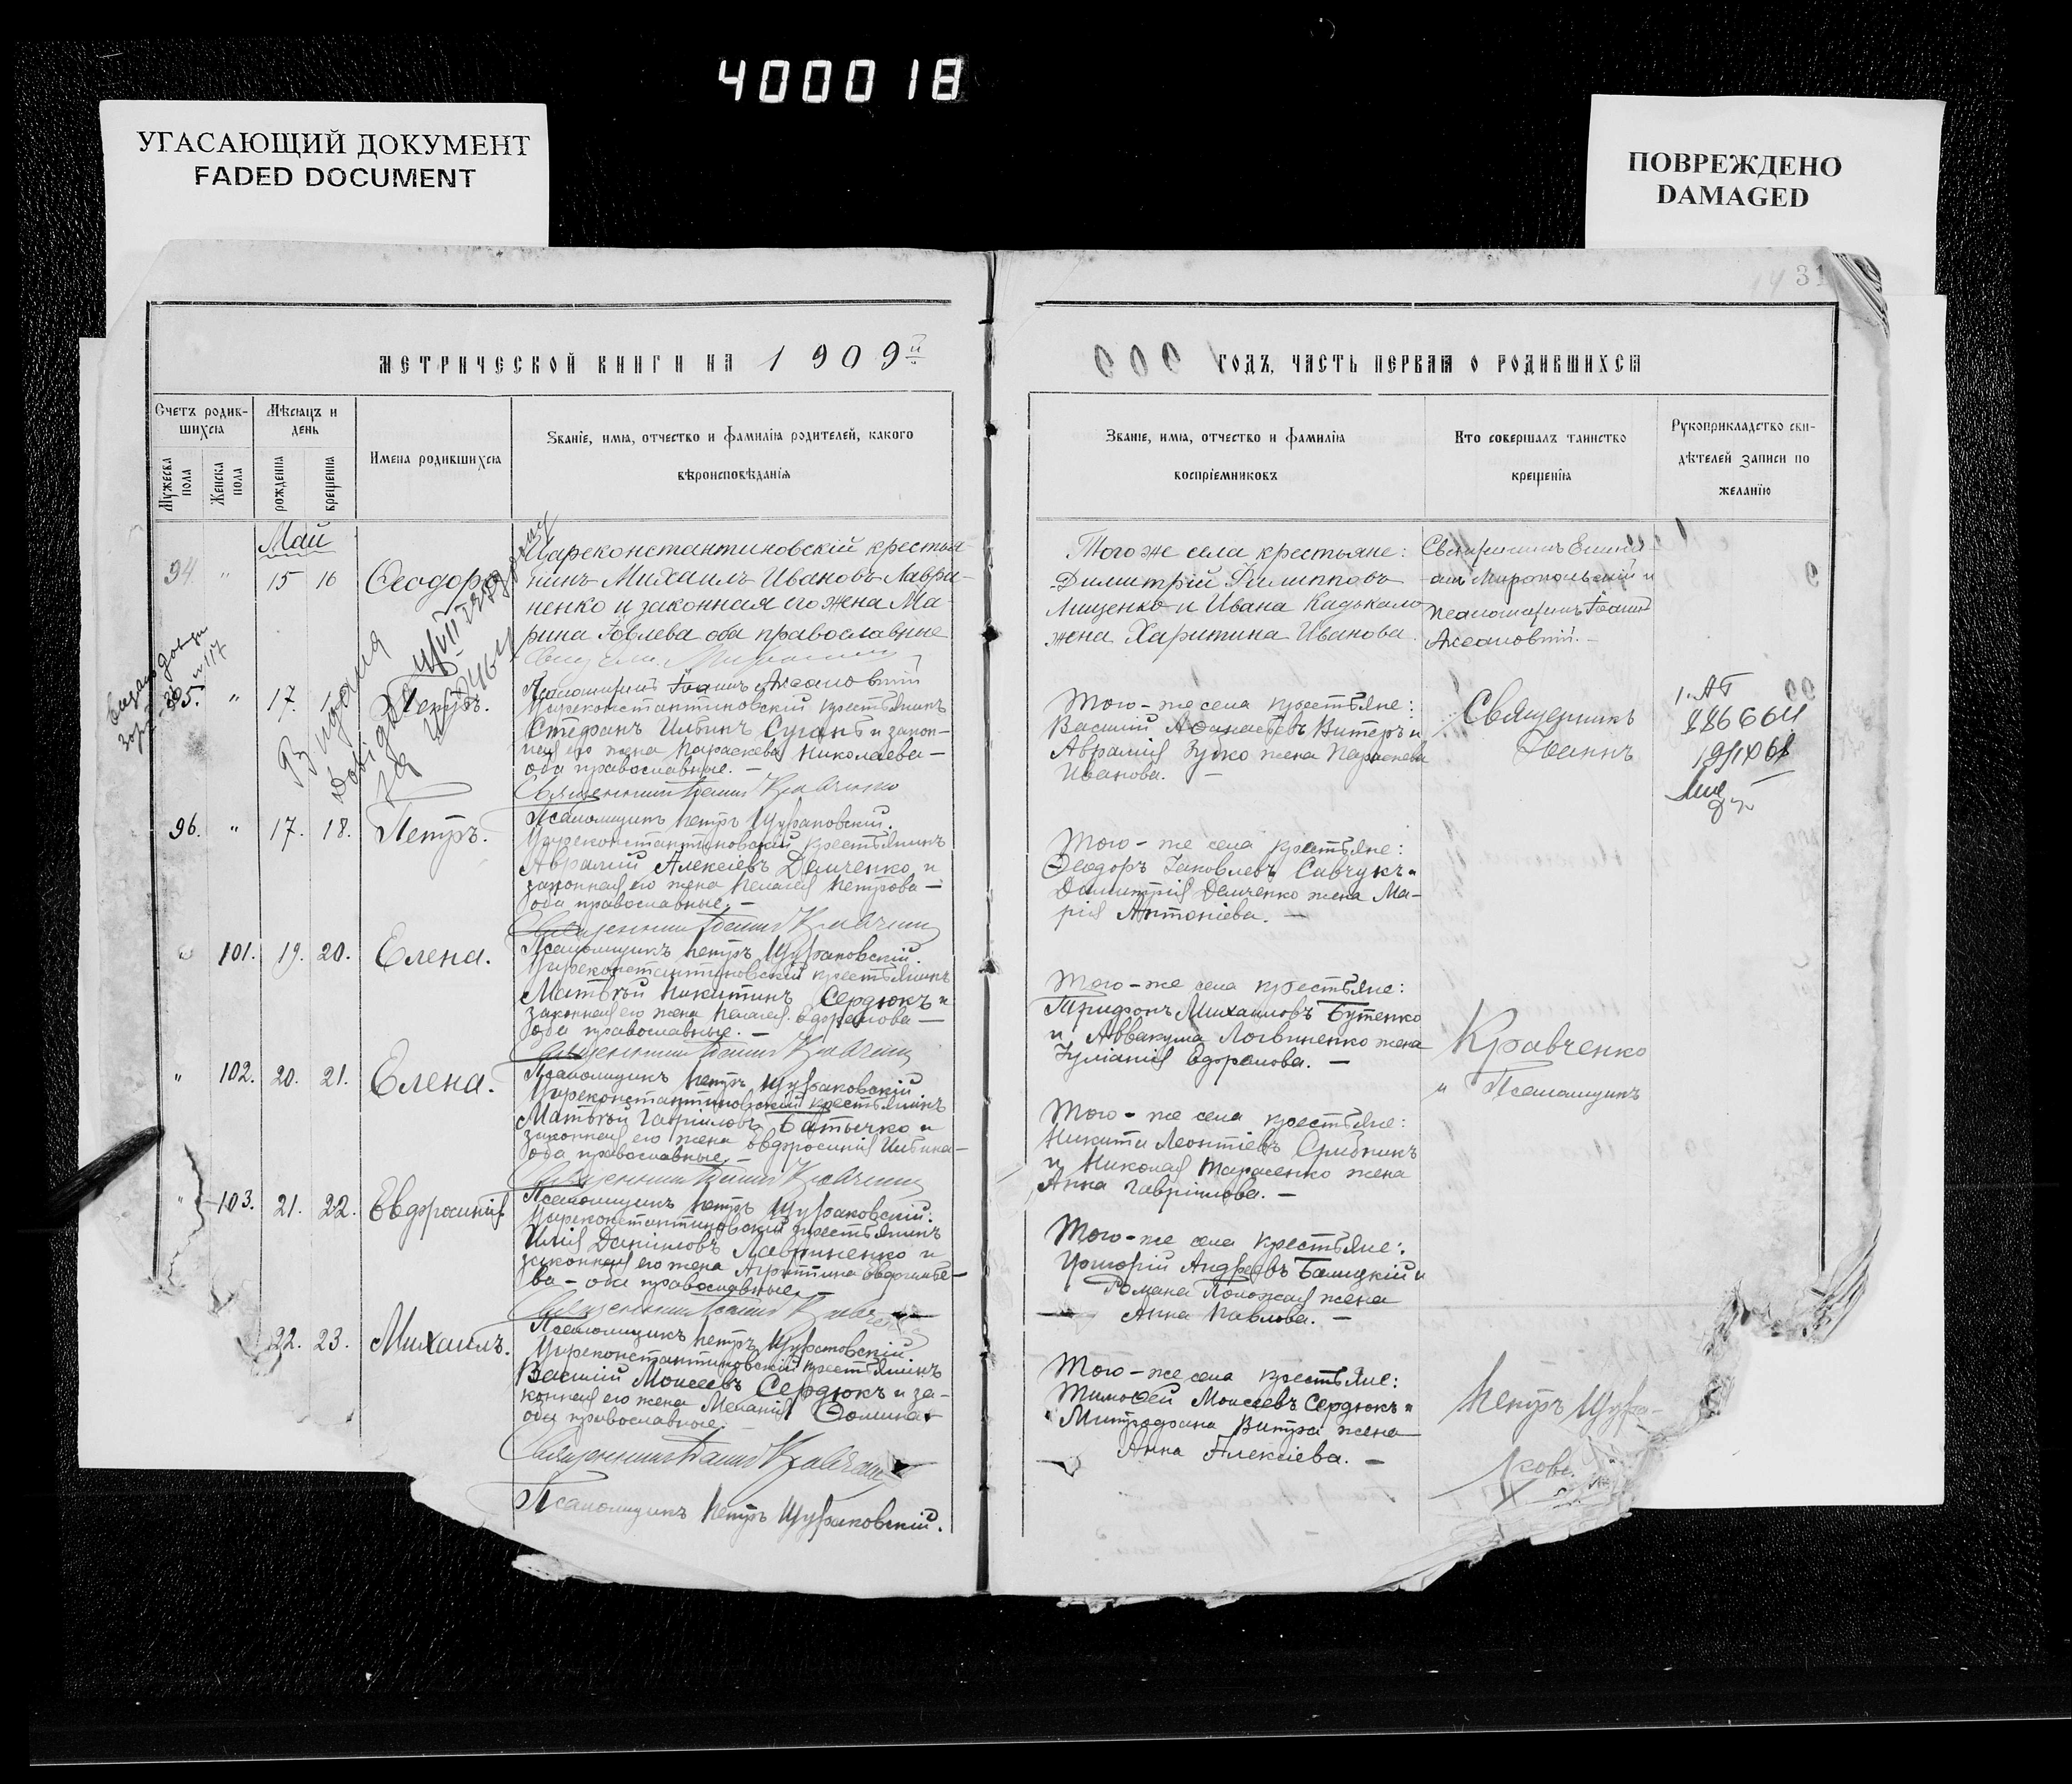 4000 18
УГАСАЮЩИЙ ДОКУМЕНТ
FADED DOCUMENT
ПОВРЕЖДЕНО
DAMAGED
31
МЕТРИЧЕСКОЙ КНИГИ НА 1909й
ГОДЪ, ЧАСТЬ ПЕРВАЯ О РОДИВШИХСЯ
Счетъ родив-
шихся
Мужеска пола
Женска пола
Мѣсяцъ и
день
рожденія
крещенія
Имена родившихся
Званіе, имя, отчество и фамилія родителей, какого
вѣроисповѣданія
Званіе, имя, отчество и фамилія
воспріемниковъ
Кто совершалъ таинство
крещенія
Рукоприкладство сви-
дѣтелей записи по
желанію
Май
94. " 15 16 Ѳеодоръ
Цареконстантиновскій крестья-
нинъ Михаилъ Ивановъ Лаври-
ненко и законная его жена Ма-
рина Іовлева оба православные
Того же села крестьяне:
Димитрій Филипповъ
Лищенко и Ивана Кадькало
жена Харитина Иванова.
Священникъ
и
псаломщикъ Іоаннъ
Псаломщикъ Іоаннъ
95. " 17. Петръ.
Цареконстантиновскій крестьянинъ
Стефанъ Ильинъ Суганъ и закон-
ная его жена Параскева Николаева –
оба православные. –
Священникъ Іоаннъ Кравченко
Псаломщикъ Петръ Щураковскій.
Того-же села крестьяне:
Василій Аѳанасьевъ Витеръ и
Аврамія Зуко жена Параскева
Иванова. –
Священникъ
Іоаннъ
1. АГ
96. " 17. 18. Петръ.
Цареконстантиновскій крестьянинъ
Аврамій Алексіевъ Демченко и
законная его жена Пелагея Петрова –
оба православные. –
Священникъ Іоаннъ Кравченко
Псаломщикъ Петръ Щураковскій.
Того-же села крестьяне:
Ѳеодоръ Іаковлевъ Савчукъ и
Димитрія Демченко жена Ма-
рія Антоніева. –
101. 19. 20. Елена.
Цареконстантиновскій крестьянинъ
Матѳей Никитинъ Сердюкъ и
законная его жена Пелагея Ефремова –
оба православные. –
Священникъ Іоаннъ Кравченко
Псаломщикъ Петръ Щураковскій
Того-же села крестьяне:
Трифонъ Михаиловъ Бутенко
и Аввакума Логвиненко жена
Іуліанія Ефремова. –
Кравченко
и Псаломщикъ
" 102. 20. 21. Елена.
Цареконстантиновскій крестьянинъ
Матѳей Гавріиловъ Батычко и
законная его жена Евфросинія Ильина –
оба православные. –
Священникъ Іоаннъ Кравченко
Псаломщикъ Петръ Щураковскій.
Того-же села крестьяне:
Никита Леонтіевъ Срибникъ
и Николая Тарасенко жена
Анна Гавріилова. –
" 103. 21. 22. Евфросинія
Цареконстантиновскій крестьянинъ
Илія Даніиловъ Лавриненко и
законная его жена
– оба православные. –
Священникъ Іоаннъ Кравченко
Псаломщикъ Петръ Щураковскій
Того-же села крестьяне:
Григорій Андреевъ Балицкій и
Романа Положая жена
Анна Павлова. –
22. 23. Михаилъ.
Цареконстантиновскій крестьянинъ
Василій Моисеевъ Сердюкъ и за-
конная его жена Меланія Ѳомина –
оба православные.
Священникъ Іоаннъ Кравченко
Псаломщикъ Петръ Щураковскій.
Того-же села крестьяне:
Тимоѳей Моисеевъ Сердюкъ и
Митрофана Витра жена
Анна Алексіева. –
Петръ Щура-
ковс